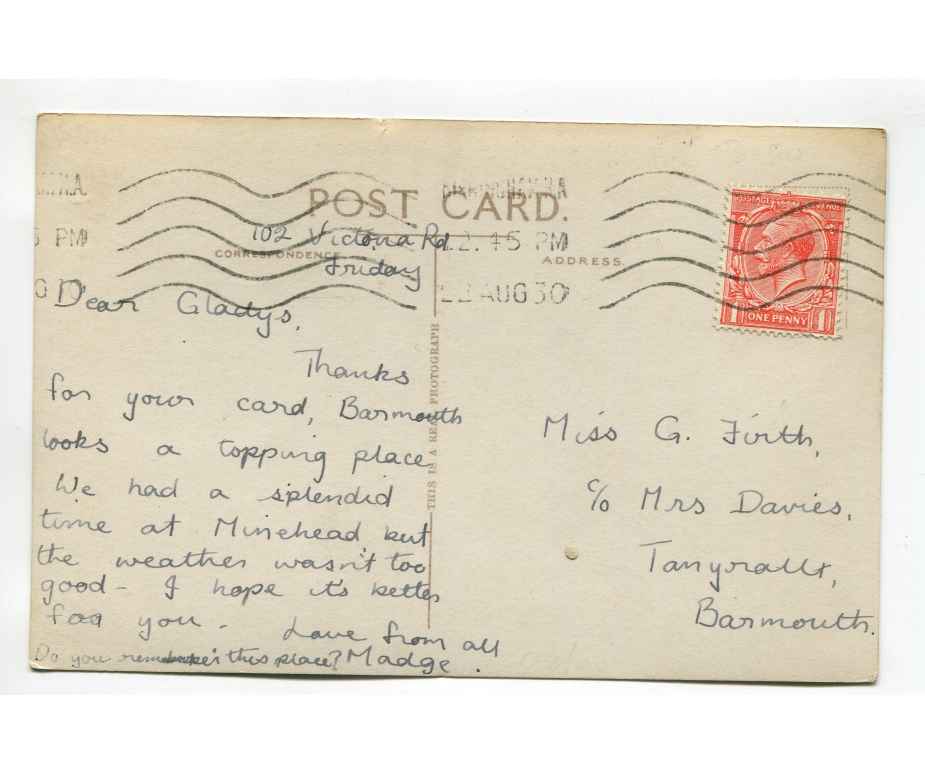 POST CARD.
CORRESPONDENCE
ADDRESS.
THIS IS A REAL PHOTOGRAPH
PM
12.15 PM
AUG 30
POSTAGE REVENUE
ONE PENNY
102 Victoria Rd
Friday
Dear Gladys,
Thanks
for your card, Barmouth
looks a topping place
We had a splendid
time at Minehead but
the weather wasn't too
good - I hope it's better
for you -
Love from all
Madge.
Do you remember this place?
Miss G. Firth,
c/o Mrs Davies,
Tanyrallt,
Barmouth.